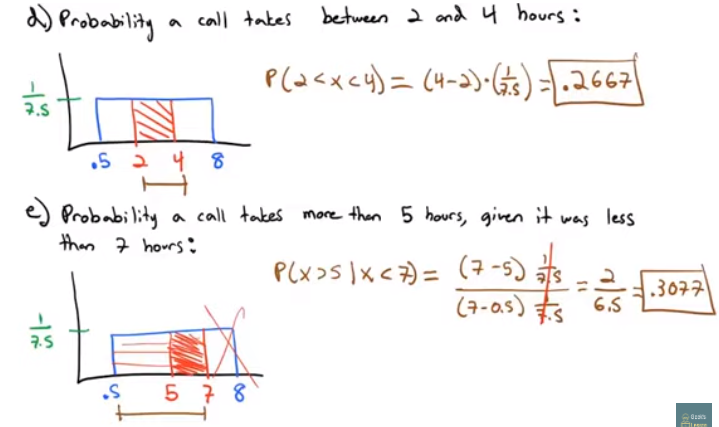 d) Probability a call takes between 2 and 4 hours:
P(2<x<4) = (4-2)·(1/7.5) = .2667
1/7.5
.5 2 4 8
e) Probability a call takes more than 5 hours, given it was less
than 7 hours:
P(x>5|x<7) = (7-5) 1/7.5 / (7-0.5) 1/7.5 = 2/6.5 = .3077
1/7.5
.5 5 7 8